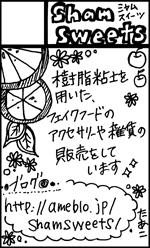 Sham
sweets
シャム
スイーツ
樹脂粘土を
用いた、
フェイクフードの
アクセサリーや雑貨の
販売をして
います
ブログ@
http://ameblo.jp/
shamsweets/